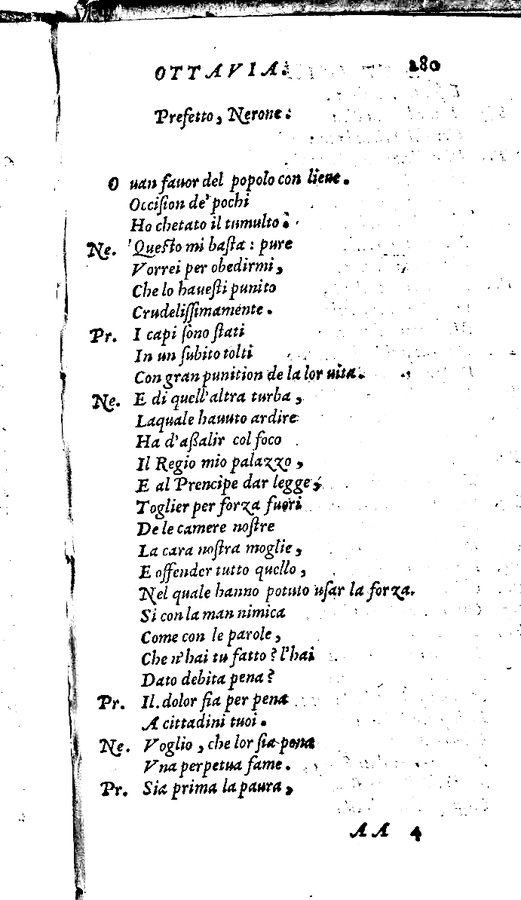 OTTAVIA. 280
Prefetto, Nerone:
O uan fauor del popolo con lieue.
Occision de' pochi
Ho chetato il tumulto.
Ne. Questo mi basta: pure
Vorrei per obedirmi,
Che lo hauesti punito
Crudelissimamente.
Pr. I capi sono stati
In un subito tolti
Con gran punition de la lor uita.
Ne. E di quell'altra turba,
Laquale hauuto ardire
Ha d'assalir col foco
Il Regio mio palazzo,
E al Prencipe dar legge;
Toglier per forza fuori
De le camere nostre
La cara nostra moglie,
E offender tutto quello,
Nel quale hanno potuto usar la forza.
Si con la man nimica
Come con le parole,
Che n'hai tu fatto? l'hai
Dato debita pena?
Pr. Il dolor sia per pena
A cittadini tuoi.
Ne. Voglio, che lor sia pena
Vna perpetua fame.
Pr. Sia prima la paura,
AA 4